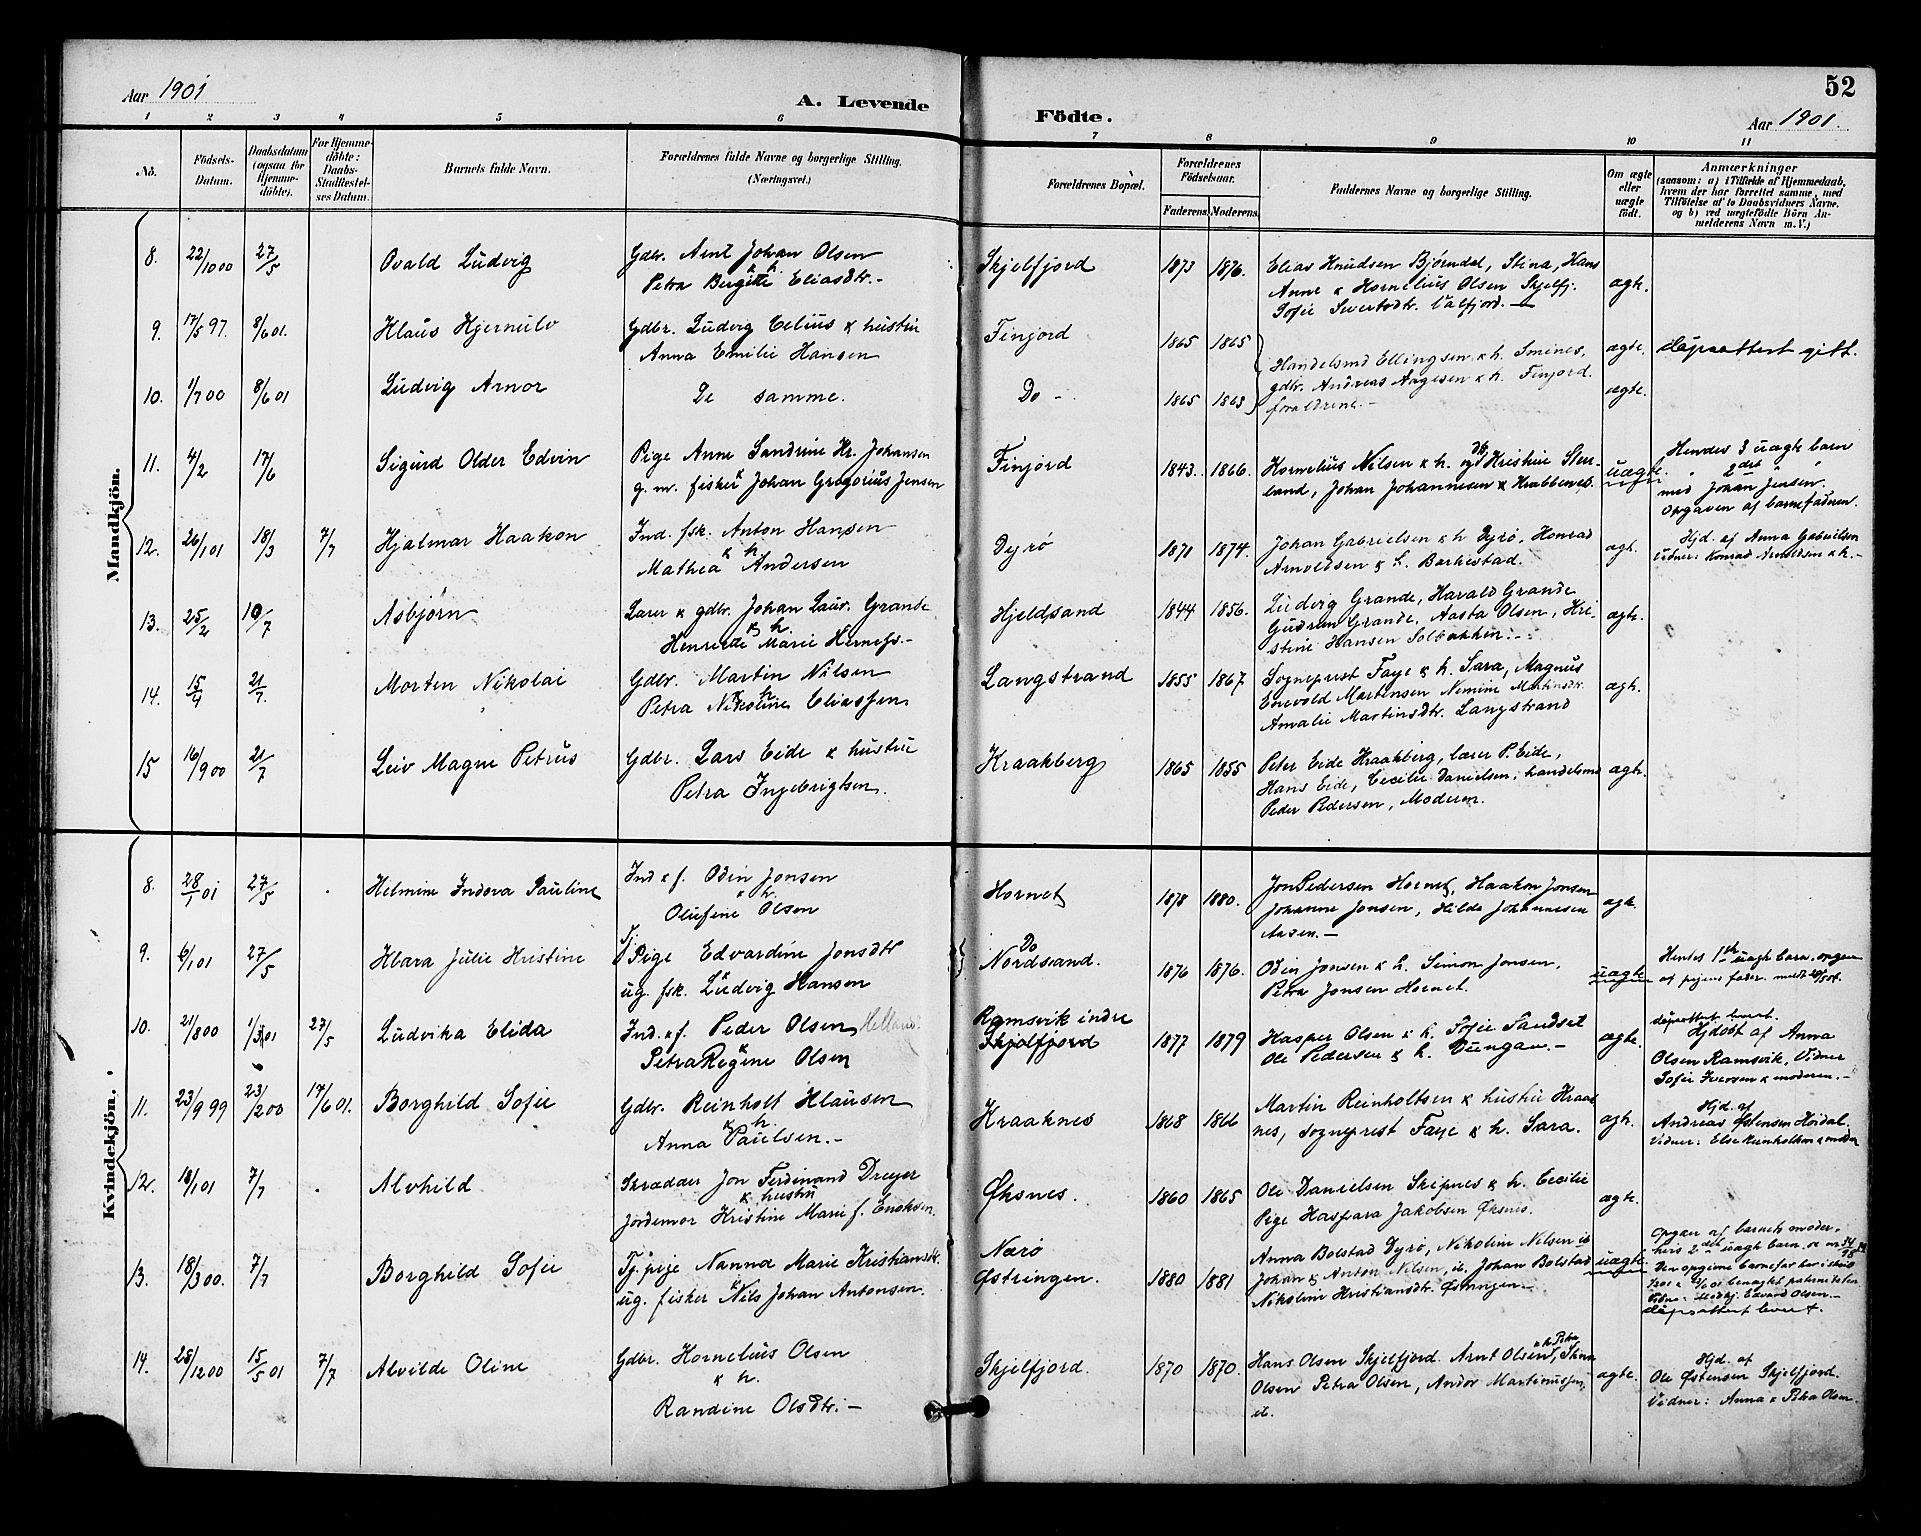 52
Aar 1901
A. Levende
Födte.
Aar 1901.
1 2 3 4 5 6 7 8 9 10 11
No.
Födsels-Datum.
Daabsdatum (ogsaa for Hjemmedöbte).
For Hjemmedöbte: Daabs-Stadfestelses Datum.
Barnets fulde Navn.
Forældrenes fulde Navne og borgerlige Stilling. (Næringsvei.)
Forældrenes Bopæl.
Forældrenes Födselsaar.
Faderens. Moderens.
Faddernes Navne og borgerlige Stilling.
Om ægte eller uægte født.
Anmærkninger
(saasom: a) i Tilfælde af Hjemmedaab,
hvem der har forrettet samme, med
Tilföielse af to Daabsvidners Navne,
og b) ved uægtefödte Börn Anmelderens Navn m.V.)
Mandkjön.
8. 22/10 00 27/5 Ovald Ludvig Gdbr. Arnt Johan Olsen Skjelfjord 1873 1876. Elias Knudsen Bjørndal, Stina, Hans
& h. Petra Bergitte Eliasdtr.- Anne & Kornelius Olsen Skjelfj. ægte.
Sofie Sivertsdtr. Valfjord.-
9. 17/5 97. 8/6 01. Klaus Hjernulv Gdbr. Ludvig Celius & hustru Finjord 1865 1865 ægte. døpsattest gitt.
Anna Emilie Hansen Handelsmd Ellingsen & h. Smines,
10. 1/7 00 8/6 01 Ludvig Arnor De samme. Do - 1865 1865 gdbr. Andreas Aagesen & h. Finjord. ægte.
forældrene.-
11. 4/2 17/6 Sigurd Older Edvin Pige Anne Sandrine Kr. Johansen Finjord 1843. 1866. Kornelius Nilsen & h. og Kristine uægte. Hendes 3 uægte barn
g. m. fisker Johan Gregorius Jensen land, Johan Johannesen & " 2det " "
med Johan Jensen.
Opgaven af barnefaderen.
12. 26/1 01 18/3 7/7 Hjalmar Haakon Ind. fsk. Anton Hansen Dyrø 1871 1874. Johan Gabrielsen & h Dyrø, Konrad ægte. Hjd. af Anna Gabrielsen
& h. Mathea Andersen Arnoldsen & h. Barkestad. Vidner: Konrad Arnoldsen & h.-
13. 25/2 10/7 Asbjørn Lærer & gdbr. Johan Laur. Grande Hjeldsand 1844 1856. Ludvig Grande, Harald Grande ægte.
& h. Henriette Marie Gudrun Grande, Aasta Olsen, Kri-
stine Hansen Solbakken.-
14. 15/4 21/7. Morten Nikolai Gdbr. Martin Nilsen Langstrand 1855 1867. Sogneprest Faye & h. Sara, Magnus ægte.
& h. Petra Nikoline Eliassen Enevold Martensen Nemine Martinsdtr.
Amalie Martinsdtr. Langstrand
15 16/9 00 21/7 Leiv Magne Petrus Gdbr. Lars Eide & hustru Kraakberg 1865 1855 Peter Eide Kraakberg, lærer P. Eide, ægte.
Petra Ingebrigtsen. Hans Eide, Cecilie Danielsen, handelsmd
Peder Pedersen, Moderen.
Kvindekjön.
8. 28/1 01 27/5 Helmine Indova Pauline Ind & f. Odin Jonsen Hornet 1878 1880. Jon Pedersen Hornet, Haakon Jonsen ægte.
& h. Olufine Olsen Johanne Jonsen, Hilda Johannesen
Aasen.-
9. 6/1 01 27/5 Klara Julie Kristine Tj. Pige Edvardine Jonsdtr Do Nordsand. 1876 1876. Odin Jonsen & h. Simon Jonsen, uægte Hendes 1ste uægte barn, opgave
ug. fsk. Ludvig Hansen Petra Jonsen Hornet. af pigens fader
10. 21/8 00 1/3 01 27/5 Ludvika Elida Ind. & f. Peder Olsen Ramsvik indre Skjelfjord 1877 1879 Kasper Olsen & h. Sofie Sandset ægte. døpsattest levert.
& Petra Regine Olsen Ole Pedersen & h. Dungan.- Hjdøbt af Anna
Olsen Ramsvik. Vidner
Sofie Iversen & moderen.-
11. 23/9 99 23/2 00 17/6 01. Borghild Sofie Gdbr. Reinholt Klausen Kraaknes 1868 1866 Martin Reinholtsen & hustru Kraak ægte. Hjd. af
& h. Anna Paulsen.- nes, sogneprest Faye & h. Sara. Andreas Østensen Høidal.
Vidner: Else Reinholtsen & moder
12. 18/1 01 7/7 Alvhild Skrædder Jon Ferdinand Dreyer Øksnes. 1860 1865 Ole Danielsen Skipnes & h. Cecilie ægte.
& hustru Jordemor Kristine Marie f. Enoksen. Pige Kaspara Jakobsen Øksnes.
13. 18/3 00. 7/7 Borghild Sofie Tj. pige Nanna Marie Kristiansdtr. Nærø Østringen. 1880 1881 Anna Bolstad Dyrø, Nikoline Nilsen ib uægte. Opgav af barnets moder.
ug. fisker Nils Johan Antonsen. Johan & Anton Nilsen, ib. Johan Bolstad hers 2det uægte barn.
Nikoline Kristiansdtr. Østringen Den opgivne barnefar har i skriv
benægtet paterniteten
Edvard Olsen.-
døpsattest levert.
14. 28/12 00 15/5 01 7/7 Alvilde Oline Gdbr. Kornelius Olsen Skjelfjord. 1870 1870. Hans Olsen Skjelfjord. Arnt Olsen & h. Petra, Stina ægte. Hjd. af
& h. Olsen Petra Olsen, Andor Martinussen, Ole Østensen Skjelfjord.
Randine Olsdtr.- ib. Vidner: Anna & Petra Olsen.